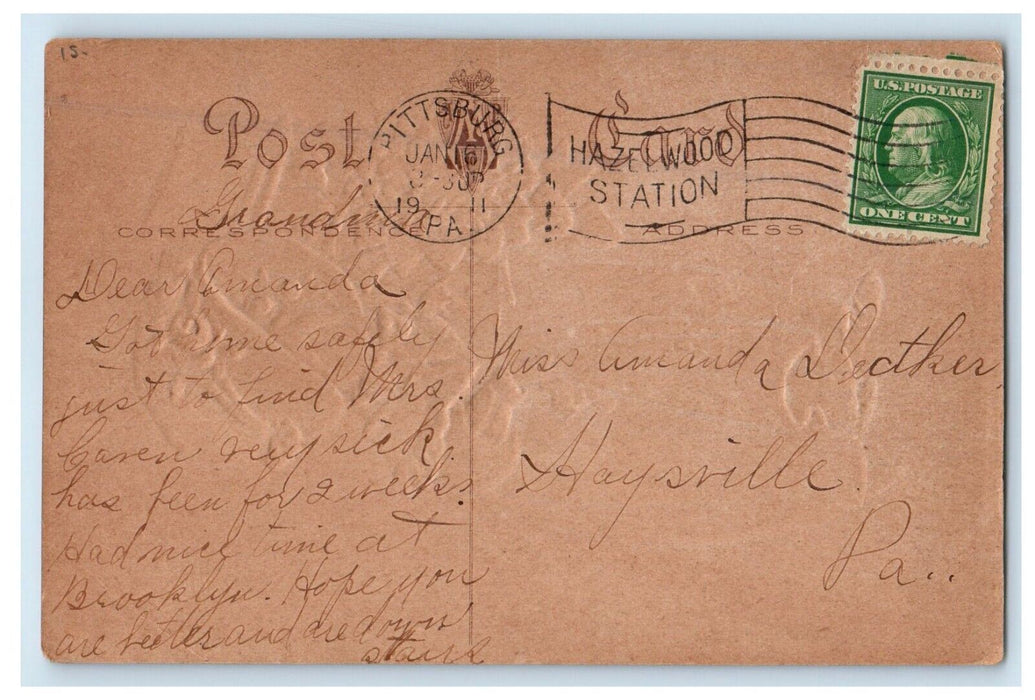 15.
Post Card
PITTSBURG
JAN 6
19 11
PA.
HAZELWOOD
STATION
U.S. POSTAGE
ONE CENT
Grandma
CORRESPONDENCE
ADDRESS
Dear Amanda
Got home safely
just to find Mrs.
very sick
has been for 2 weeks.
Had nice time at
Brooklyn. Hope you
are better and are down
stairs
Miss Amanda
Haysville.
Pa..